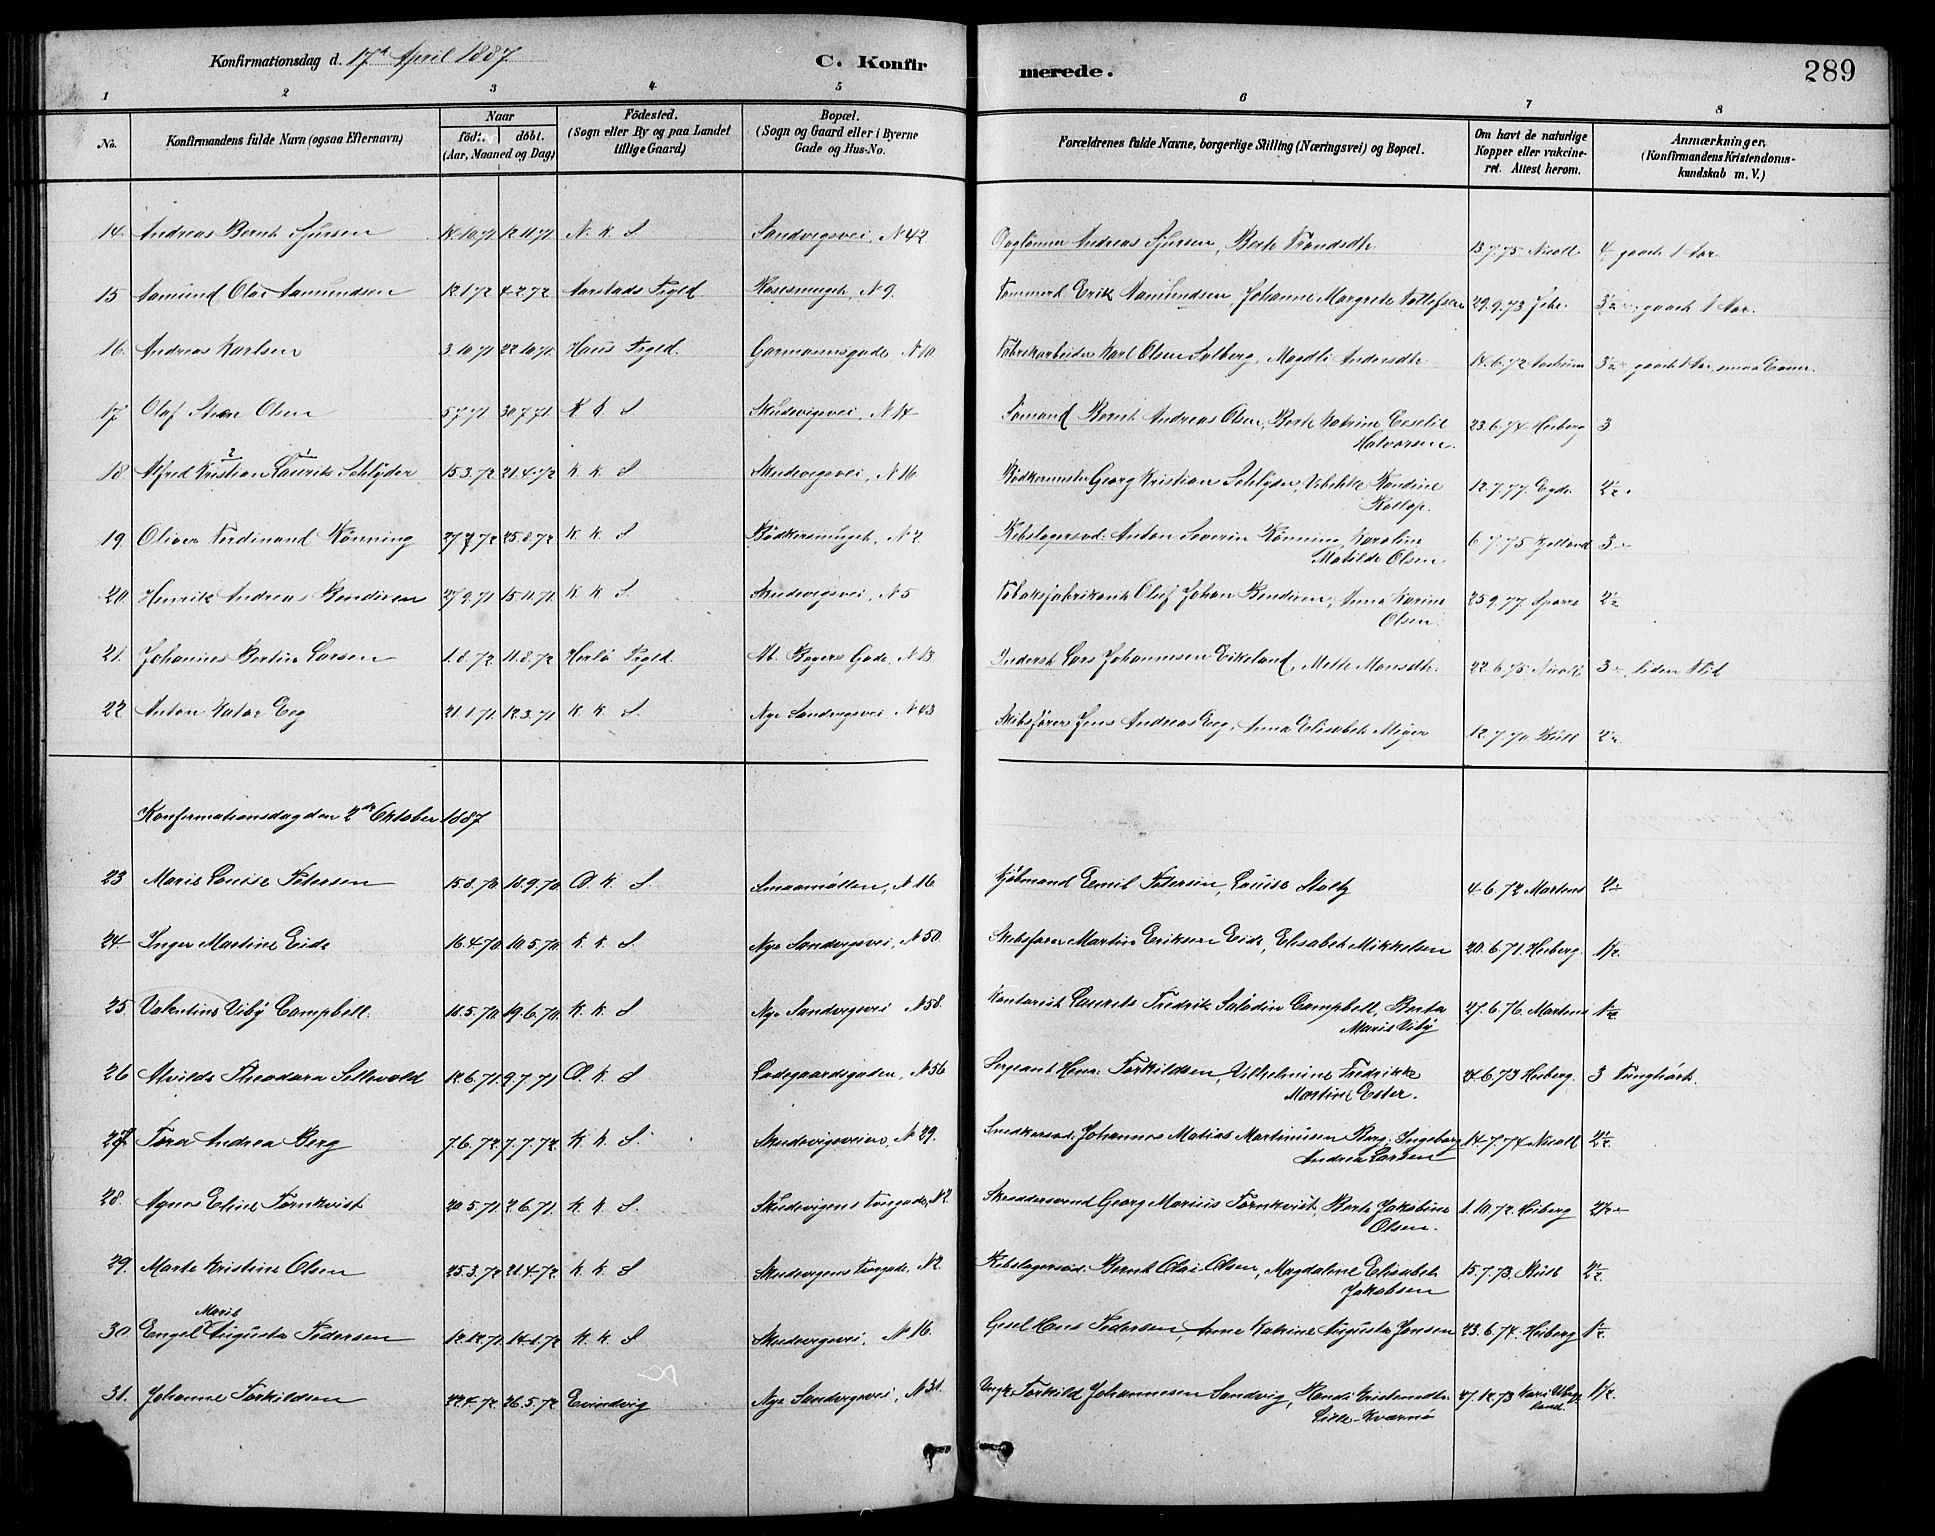 Konfirmationsdag d. 17de April 1887 C. Konfirmerede. 289
1 2 3 4 5 6 7 8
No. Konfirmandens fulde Navn (ogsaa Efternavn) Naar födt. döbt. (Aar, Maaned og Dag) Födested. (Sogn eller By og paa Landet tillige Gaard) Bopæl. (Sogn og Gaard eller i Byerne Gade og Hus-No. Forældrenes fulde Navne, borgerlige Stilling (Næringsvei) og Bopæl. Om havt de naturlige Kopper eller vakcineret. Attest herom. Anmærkninger, (Konfirmandens Kristendomskundskab m. V.)
14. Andreas Bernt Sjursen 12.11.71 N. K. S Sandvigsvei, N 42 Andreas Sjursen, Berte 13.7.75 Nicoll 4
15 Aamund Olai Aamundsen 12.1.72 4.2.72 Aarstads Prgld. Rosesmuget, N 9. Tømmerd. Erik Aamundsen, Johanne Margrete Tollefsen 29.9.73
16. Andreas Karlsen 3.10.71 22.10.71 Haus Prgld. Garmannsgade, N 10. Fabrikarbeider Karl Olsen Solberg, Magdli Andersdtr. 14.6.72
17. Olaf Olsen 5.7.71 30.7.71 K K S Skudevigsvei, N 14 Sømand Bernt Andreas Olsen, Berte Katrine
Halvorsen. 23.6.74 Heiberg 3
18. Alfred Kristian Laurits Schlyder 15.3.72 21.4.72 K K S Skudevigsvei, N 16 Georg Kristian Schlyder,
12.7.77. 2½.
19. Oliver Ferdinand Rönning 27.7.72 25.8.72 K K S Bödkersmuget, N 2 Rebslagersvd. Anton Severin Rönning, Karoline
Matilde Olsen 6.7.75 Kjelland 3
20. Henrik Andreas Bendixen 27.9.71 15.11.71 K K S. Skudevigsvei, N 5 Tobaksfabrikant Oluf Johan Bendixen, Anna Karine
Olsen. 25.9.77. Sparre 2½
21. Johannes Bertin Larsen 1.8.72. 11.8.72 Herlö Prgld. M. Beyers Gade, N 13 Inderst Lars Johannesen Eikeland, Mette Monsdtr. 22.6.75 Nicoll 3, liden Flid
22 Anton Eeg 21.1.71 12.3.71 K K S. Nye Sandvigsvei N 43 Skibsfører Jens Andreas Eeg, Anna Elisabeth Meyer 2½.
Konfirmationsdag den 2den Oktober 1887
23 Marie Louise Petersen 15.8.70 18.9.70 D. K. S. Smaamöllen, N 16 Kjöbmand Emil Petersen, Louise Stoltz 4.6.72 Martens 2
24 Inger Martine Eide 16.4.70 10.5.70 K. K. S. Nye Sandvigsvei, N 50. Skibsfører Martin Eriksen Eide, Elisabeth Mikkelsen 20.6.71. Heiberg. 1½.
25 Valentine Viby Campbell. 11.5.70 19.6.70 K. K. S Nye Sandvigsvei N 58. Kontorist Laurits Fredrik Saladin Campbell, Berta
Marie Viby 27.6.76 Martens 1½
26 Alvilde Theodora Sellevold 12.6.71 9.7.71 D. K. S Ladegaardsgaden, N 56 Sergeant Henr. Torkildsen, Vilhelmine Fredrikke
Martine Ester. 24.6.73 Heiberg. 3 Tunghört.
27 Tora Andrea Berg 7.6.72 7.7.72. K K. S. Skudevigsveien, N 29. Snedkersvd. Johannes Matias Martinusen Berg, Ingeborg
Andrea Larsen 14.7.74 Nicoll 2½
28. Agnes Eline Törnkvist 20.5.71 2.6.71. K K S. Skudevigens Tvergade, N 2. Skræddersvend Georg Marius Törnkvist, Berte Jakobine
Olsen. 1.10.72 Heiberg 2½
29. Marte Kristine Olsen 25.3.72 21.4.72. K. K. S Skudevigens Tvergade, N 2. Rebslagersvd. Bernt Olai Olsen, Magdalene Elisabeth
Jakobsen 15.7.73. 2½
Marie
30 Engel Augusta Pedersen 12.12.71 14.1.72 K. K. S Skudevigsvei, N 16. Hans Pedersen, Anne Katrine Augusta Jansen 23.6.74. Heiberg 1½
31. Johanne Torkildsen 22.4.72 26.5.72 Evindvig Nye Sandvigsvei, N 31. Torkild Johannesen Sandvig,
Lille-Kværnö 27.12.73 1½.